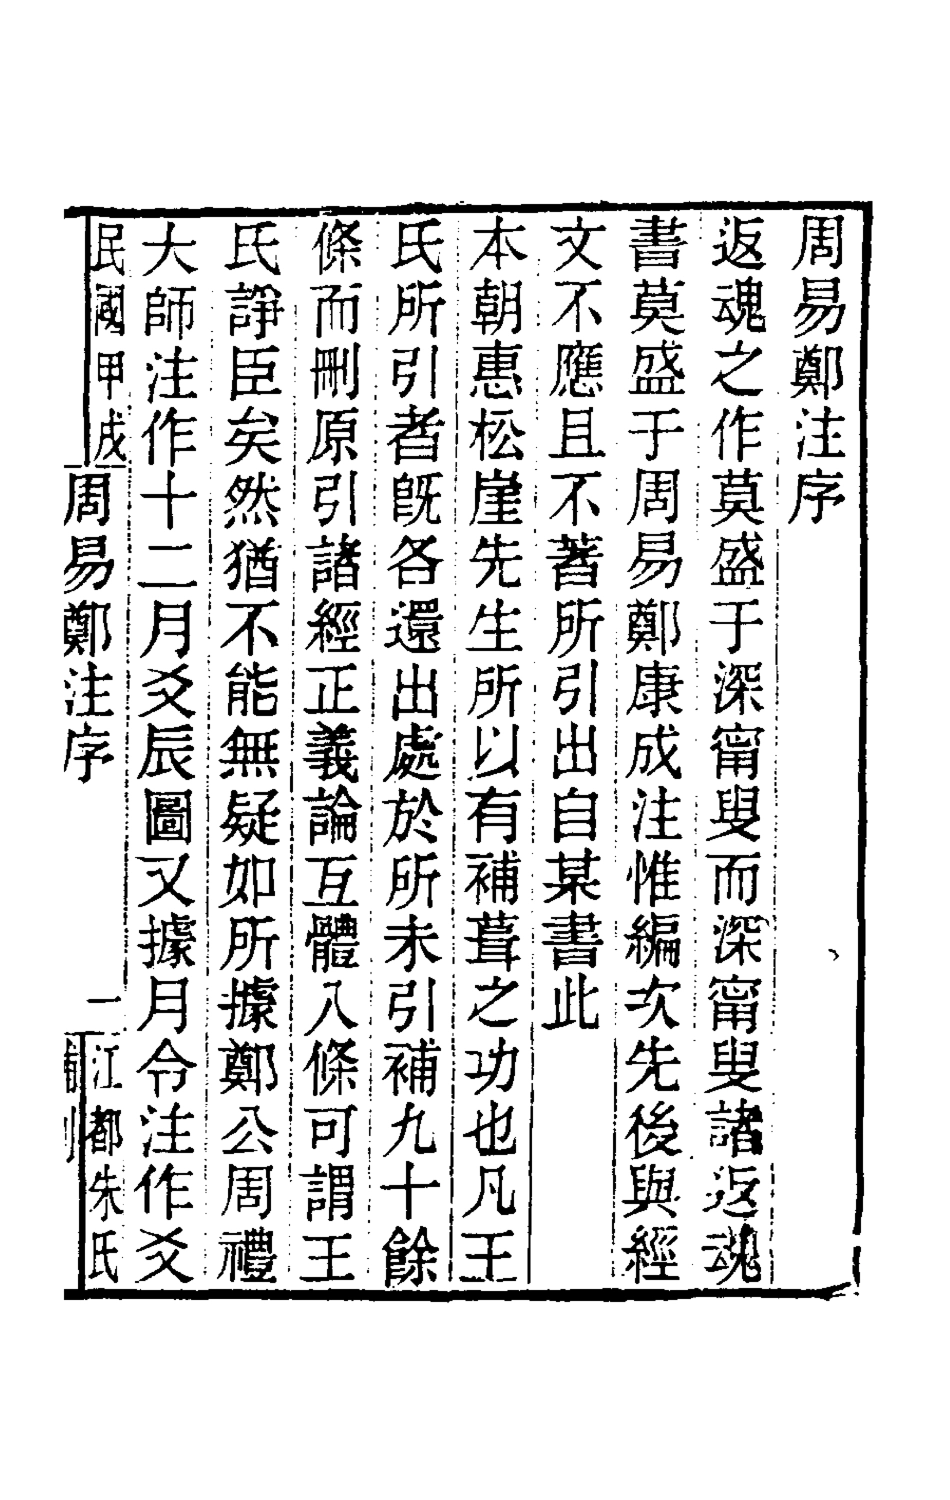 周易鄭注序
返魂之作莫盛于深甯叟而深甯叟諸返魂
書莫盛于周易鄭康成注惟編次先後與經
文不應且不著所引出自某書此
本朝惠松崖先生所以有補葺之功也凡王
氏所引者旣各還出處於所未引補九十餘
條而刪原引諸經正義論互體八條可謂王
氏諍臣矣然猶不能無疑如所據鄭公周禮
大師注作十二月爻辰圖又據月令注作爻
民國甲戌
周易鄭注序
一
江都朱氏
補刊